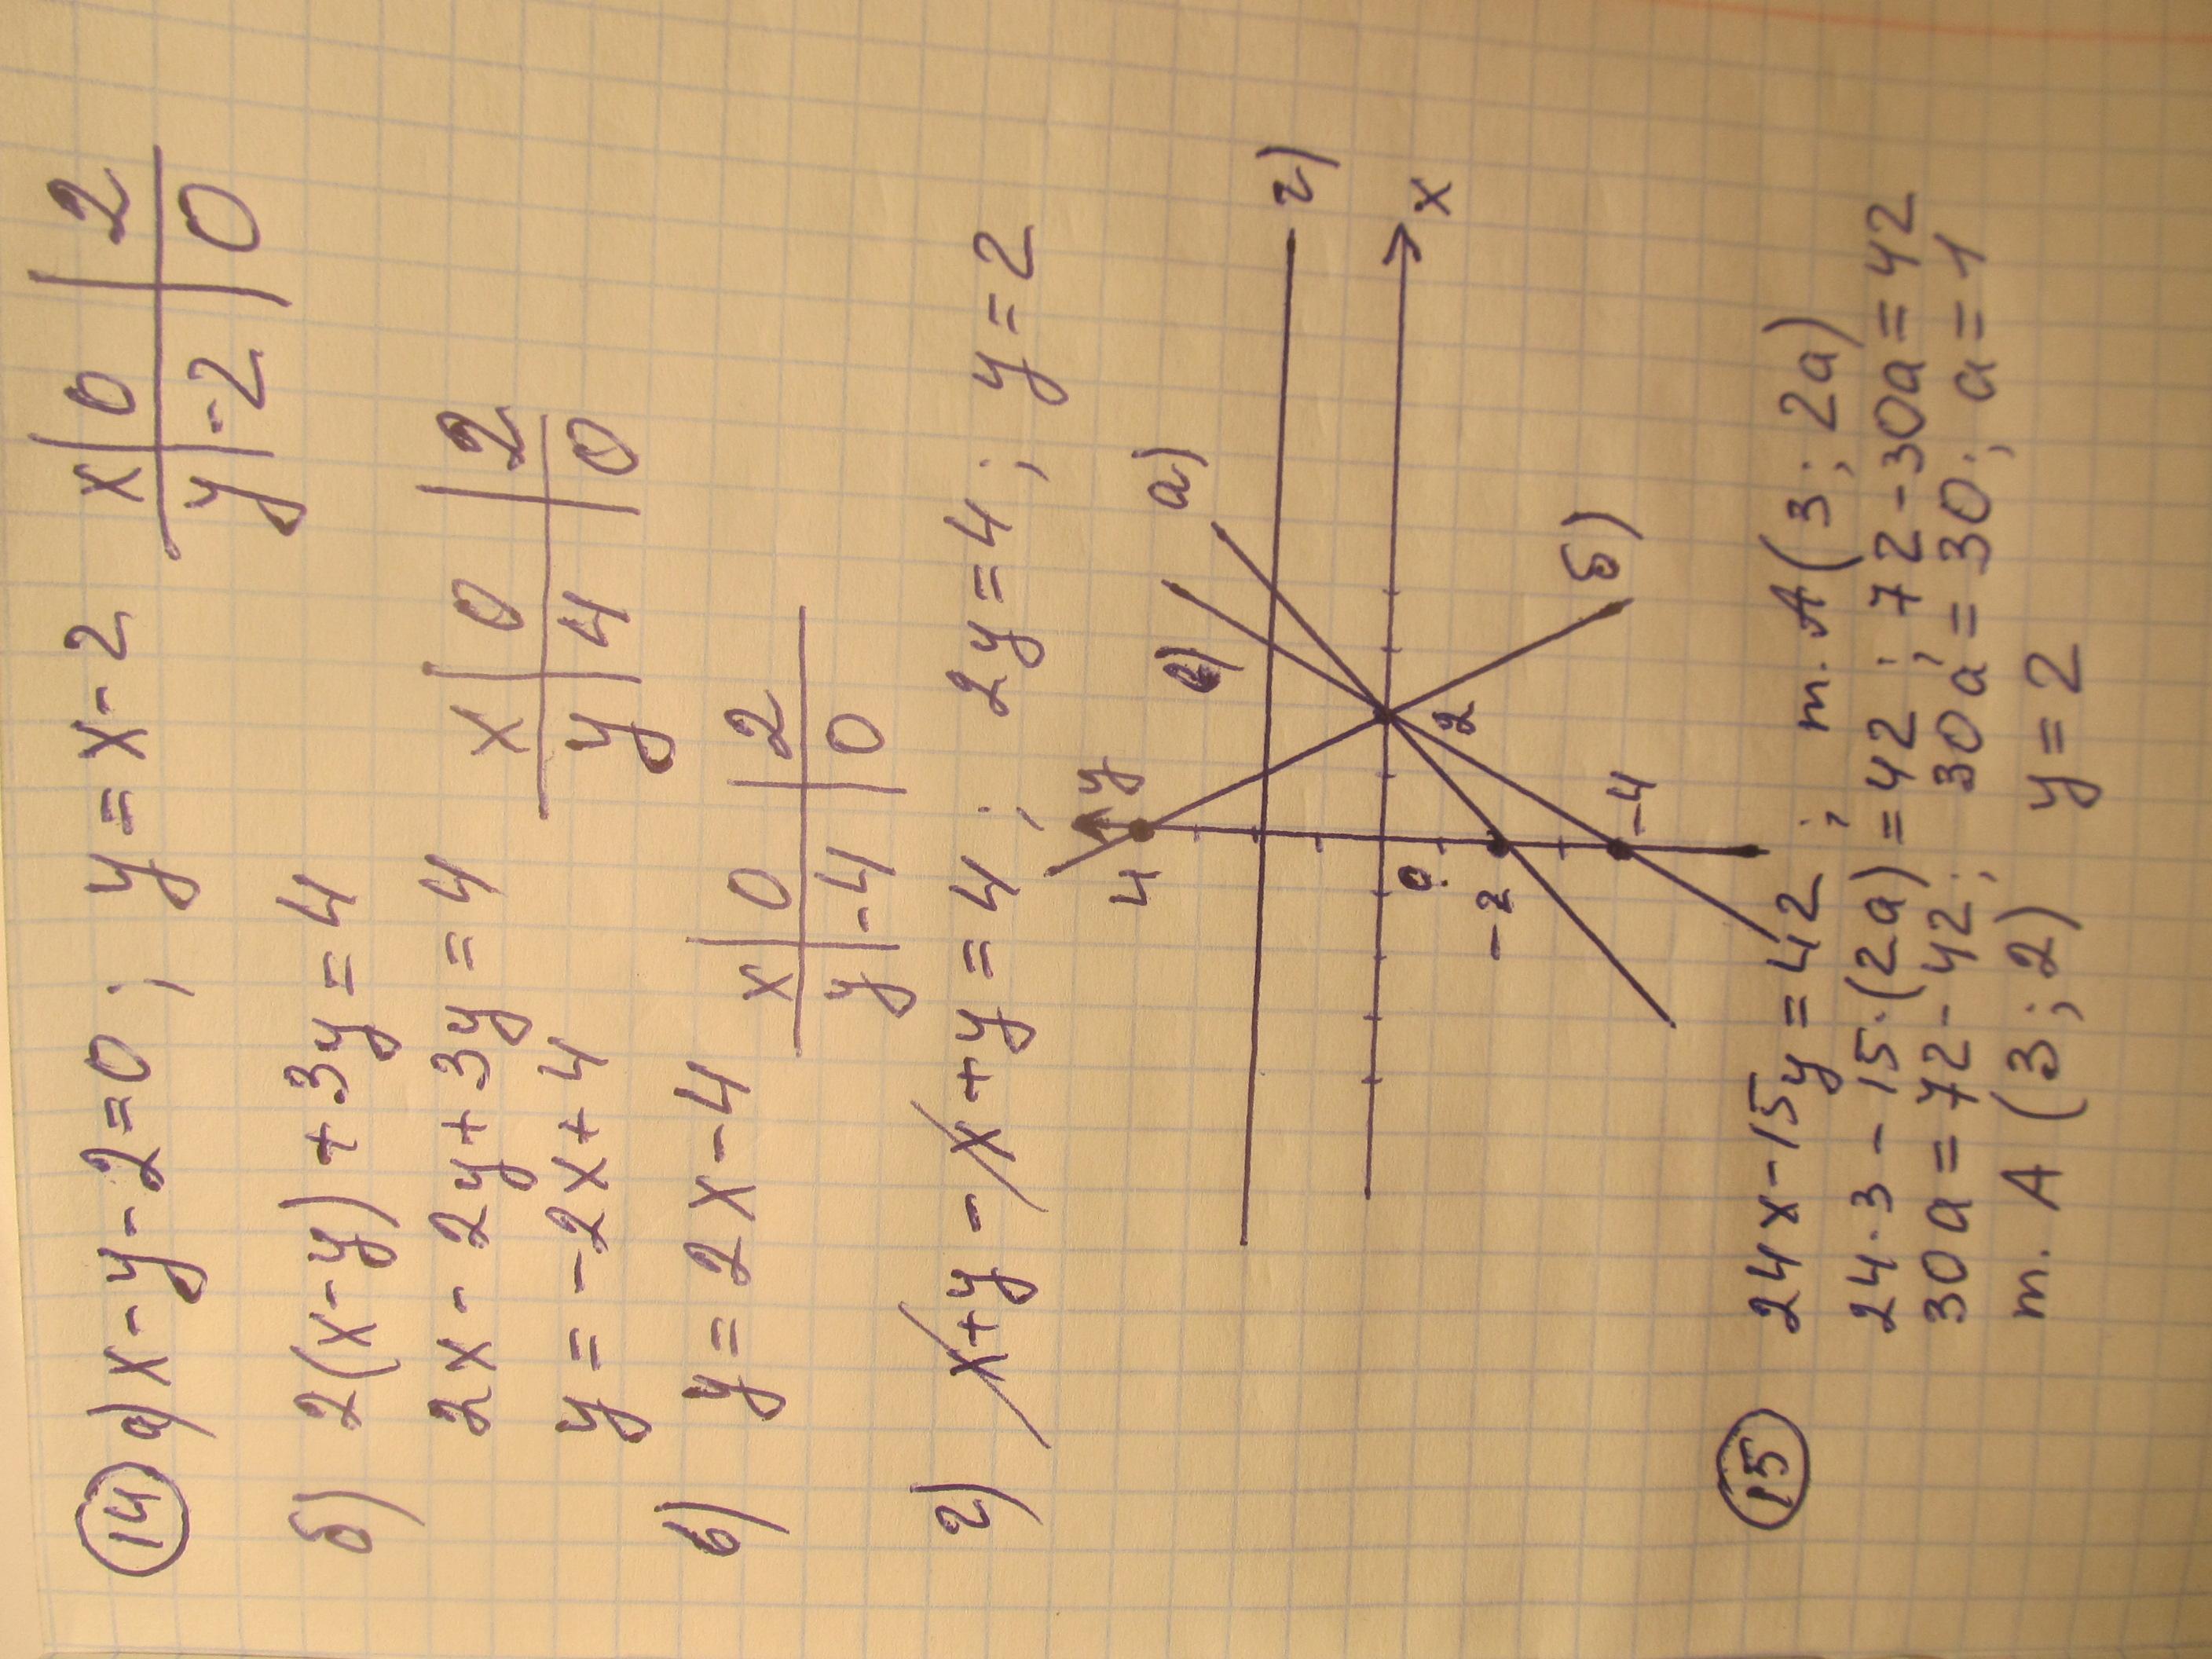 14 а) x-y-2=0; y=x-2
x | 0 | 2
y | -2 | 0
б) 2(x-y)+3y=4
2x-2y+3y=4
y=-2x+4
x | 0 | 2
y | 4 | 0
в) y=2x-4
x | 0 | 2
y | -4 | 0
г) x+y-x+y=4; 2y=4; y=2
y
4
в) а) г)
x
0 2
-2
-4
б)
15 24x-15y=42; т. A(3; 2a)
24·3-15·(2a)=42; 72-30a=42
30a=72-42; 30a=30; a=1
т. A (3; 2) y=2